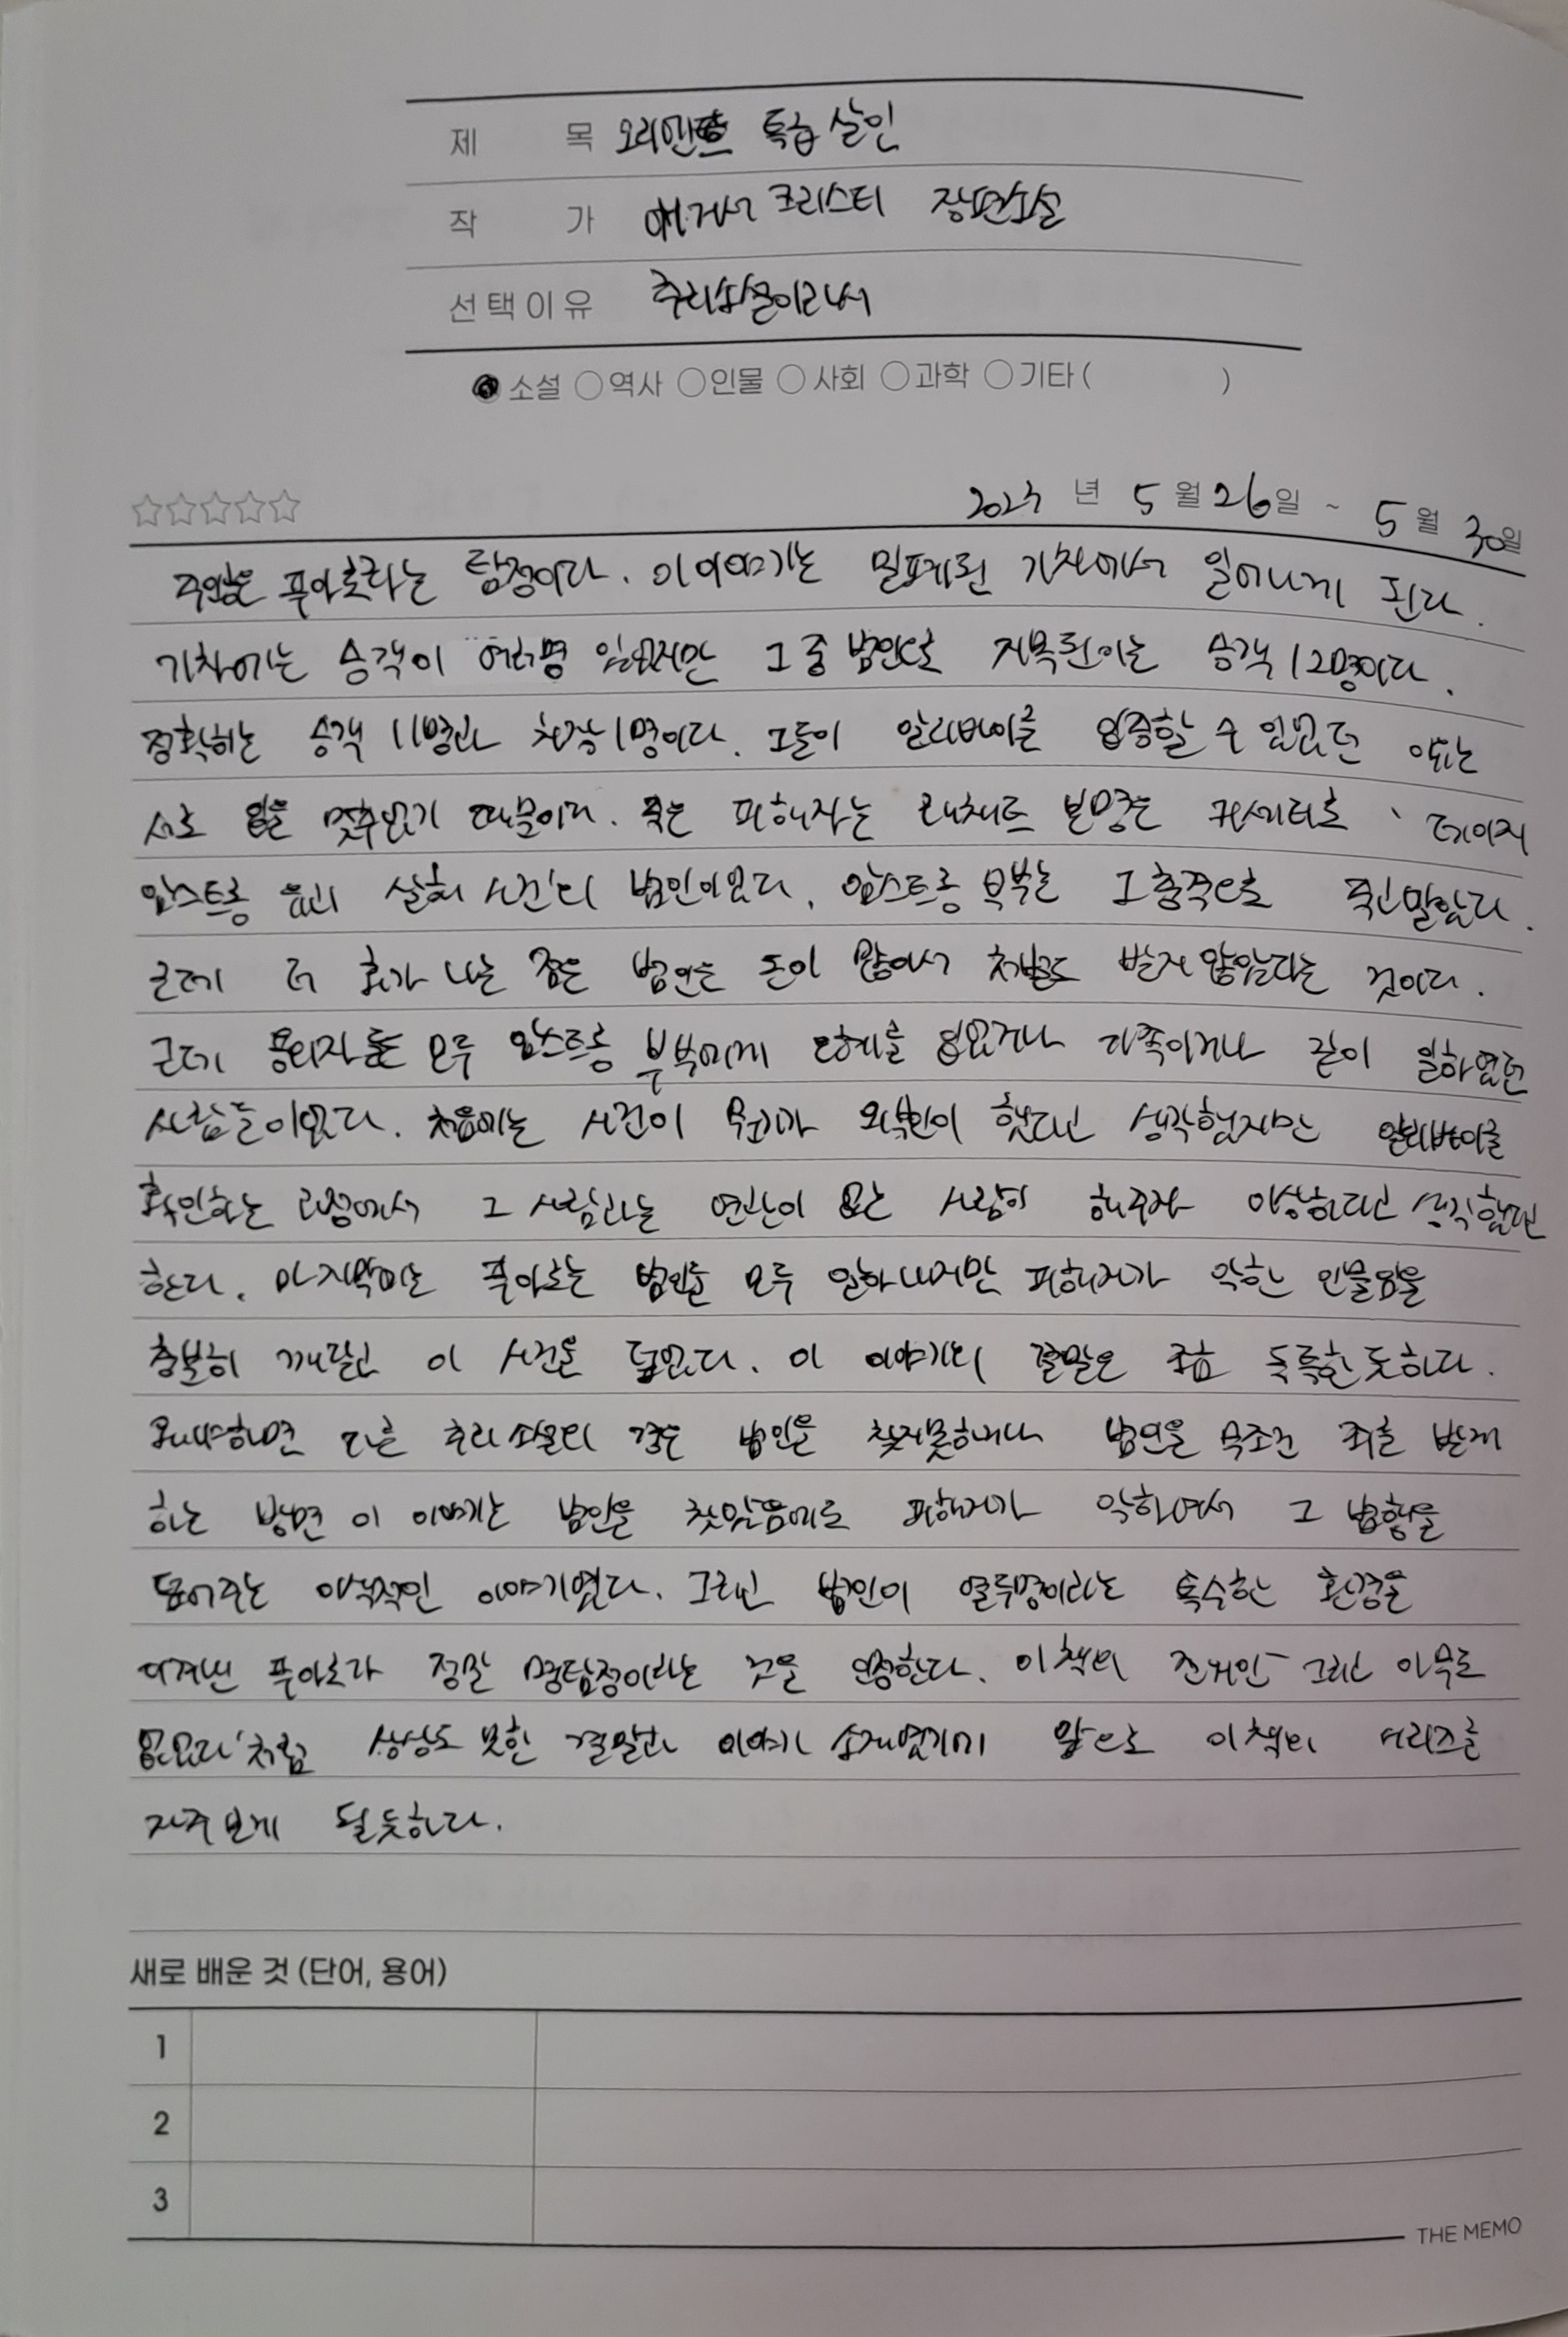 제 목 오리엔트 특급 살인
작 가 애거서 크리스티 장편소설
선택이유 추리소설이라서
소설 역사 인물 사회 과학 기타( )
2023 년 5 월 26 일 ~ 5 월 30 일
주인공은 푸아로라는 탐정이다. 이 이야기는 밀폐된 기차에서 일어나게 된다.
기차에는 승객이 여러명 있었지만 그 중 범인으로 지목된 이는 승객 12명이다.
정확히는 승객 11명과 차장 1명이다. 그들이 알리바이를 입증할 수 있었던
서로 입을 맞추었기 때문이다. 죽은 피해자는 래체트 본명은 카세티로 데이지
암스트롱 유괴 살해 사건의 범인이었다. 암스트롱 부부는 그 충격으로 죽고 말았다.
근데 더 화가 나는 점은 범인은 돈이 많아서 처벌도 받지 않았다는 것이다.
근데 용의자들은 모두 암스트롱 부부에게 은혜를 입었거나 가족이거나 같이 일하였던
사람들이었다. 처음에는 사건이 뭔가 외부인이 했다고 생각했지만 알리바이를
확인하는 과정에서 그 사람과는 연관이 없는 사람이 해주자 이상하다고 생각했다고
한다. 마지막에는 푸아로는 범인을 모두 알아내지만 피해자가 악한 인물임을
충분히 깨닫고 이 사건을 덮었다. 이 이야기의 결말은 조금 독특한 듯하다.
왜냐하면 다른 추리 소설의 경우 범인을 찾지 못하거나 범인을 무조건 죄를 받게
하는 방면 이 이야기는 범인을 찾았음에도 피해자가 악하여서 그 범행을
덮어주는 이색적인 이야기였다. 그리고 범인이 열두명이라는 특수한 환경을
이겨낸 푸아로가 정말 명탐정이라는 것을 인정한다. 이 책의 전작인 그리고 아무도
없었다'처럼 상상도 못한 결말과 이야기 소재였기에 앞으로 이 책의 시리즈를
자주 보게 될듯하다.
새로 배운 것 (단어, 용어)
1
2
3
THE MEMO